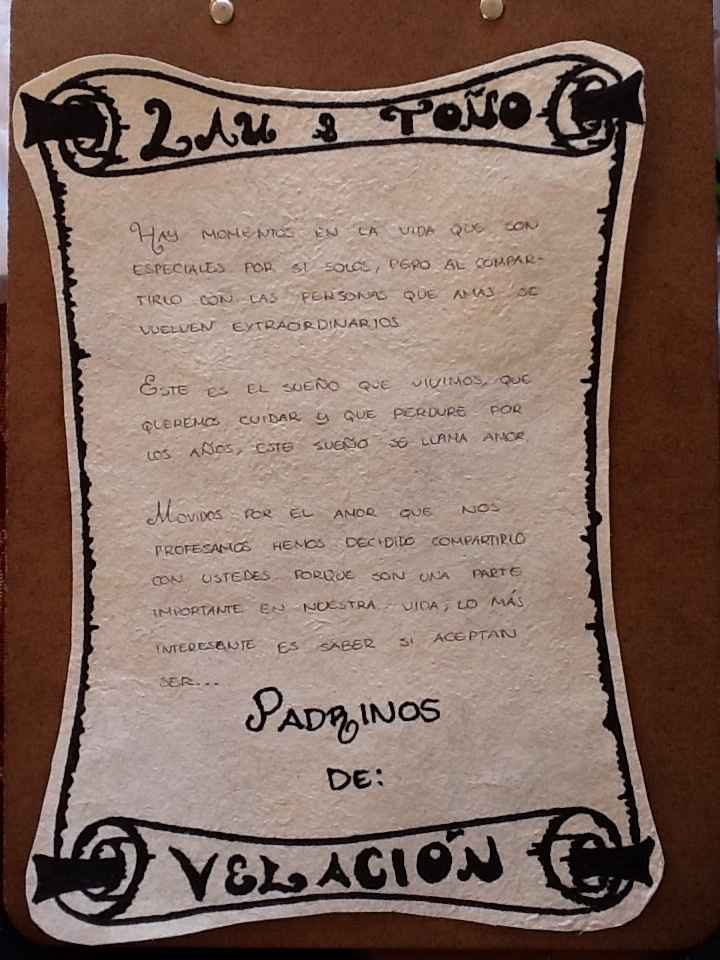 LAU & TOÑO
HAY MOMENTOS EN LA VIDA QUE SON
ESPECIALES POR SI SOLOS, PERO AL COMPAR-
TIRLO CON LAS PERSONAS QUE AMAS SE
VUELVEN EXTRAORDINARIOS
ESTE ES EL SUEÑO QUE VIVIMOS, QUE
QUEREMOS CUIDAR Y QUE PERDURE POR
LOS AÑOS, ESTE SUEÑO SE LLAMA AMOR.
MOVIDOS POR EL AMOR QUE NOS
PROFESAMOS HEMOS DECIDIDO COMPARTIRLO
CON USTEDES PORQUE SON UNA PARTE
IMPORTANTE EN NUESTRA VIDA, LO MÁS
INTERESANTE ES SABER SI ACEPTAN
SER...
PADRINOS
DE:
VELACIÓN